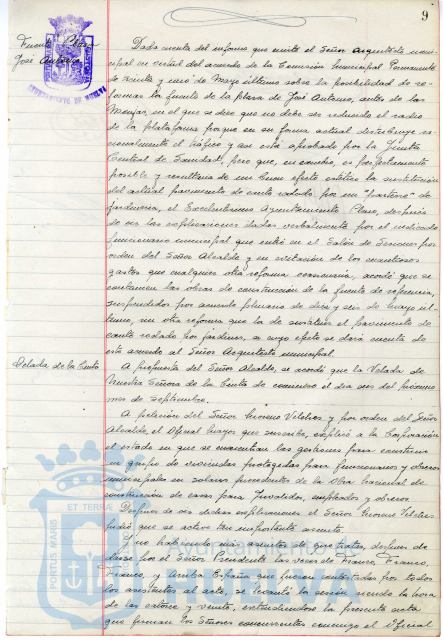 9
Fuente Plaza
José Antonio
AYUNTAMIENTO DE HUELVA
Dada cuenta del informe que emite el Señor Arquitecto muni-
cipal en virtud del acuerdo de la Comisión Municipal Permanente
de treinta y uno de Mayo último sobre la posibilidad de re-
formar la fuente de la plaza de José Antonio, antes de las
Monjas, en el que se dice que no debe ser reducido el radio
de la plataforma porque en su forma actual distribuye ra-
cionalmente el tráfico y así está aprobado por la Junta
Central de Sanidad, pero que, en cambio, es perfectamente
posible y resultaría de un buen efecto estético la sustitución
del actual pavimento de canto rodado por un "parterre" de
jardinería, el Excelentísimo Ayuntamiento Pleno, después
de oir las explicaciones dadas verbalmente por el indicado
funcionario municipal que entró en el Salón de Sesiones por
orden del Señor Alcalde y en evitación de los cuantiosos
gastos que cualquier otra reforma ocasionaría, acordó que se
continuen las obras de construcción de la fuente de referencia,
suspendidas por acuerdo plenario de diez y seis de Mayo úl-
timo, sin otra reforma que la de sustituir el pavimento de
canto rodado por jardines, a cuyo efecto se dará cuenta de
este acuerdo al Señor Arquitecto municipal.
Velada de la Cinta
A propuesta del Señor Alcalde, se acordó que la Velada de
Nuestra Señora de la Cinta dé comienzo el día seis del próximo
mes de Septiembre.
A petición del Señor Moreno Vilches y por orden del Señor
Alcalde, el Oficial Mayor que suscribe, explicó a la Corporación
el estado en que se encuentran las gestiones para construir
un grupo de viviendas protegidas para funcionarios y obreros
municipales en solares procedentes de la Obra Nacional de
construcción de casas para Inválidos, empleados y obreros.
Después de oir dichas explicaciones el Señor Moreno Vilches
pidió que se active tan importante asunto.
Y no habiendo más asuntos de que tratar, después de
darse por el Señor Presidente las voces de Franco, Franco,
Franco, y Arriba España que fueron contestadas por todos
los asistentes al acto, se levantó la sesión siendo la hora
de las catorce y veinte, extendiéndose la presente acta
que firman los Señores concurrentes conmigo el Oficial
PORTUS MARIS
ET TERRAE
Ayuntamiento de